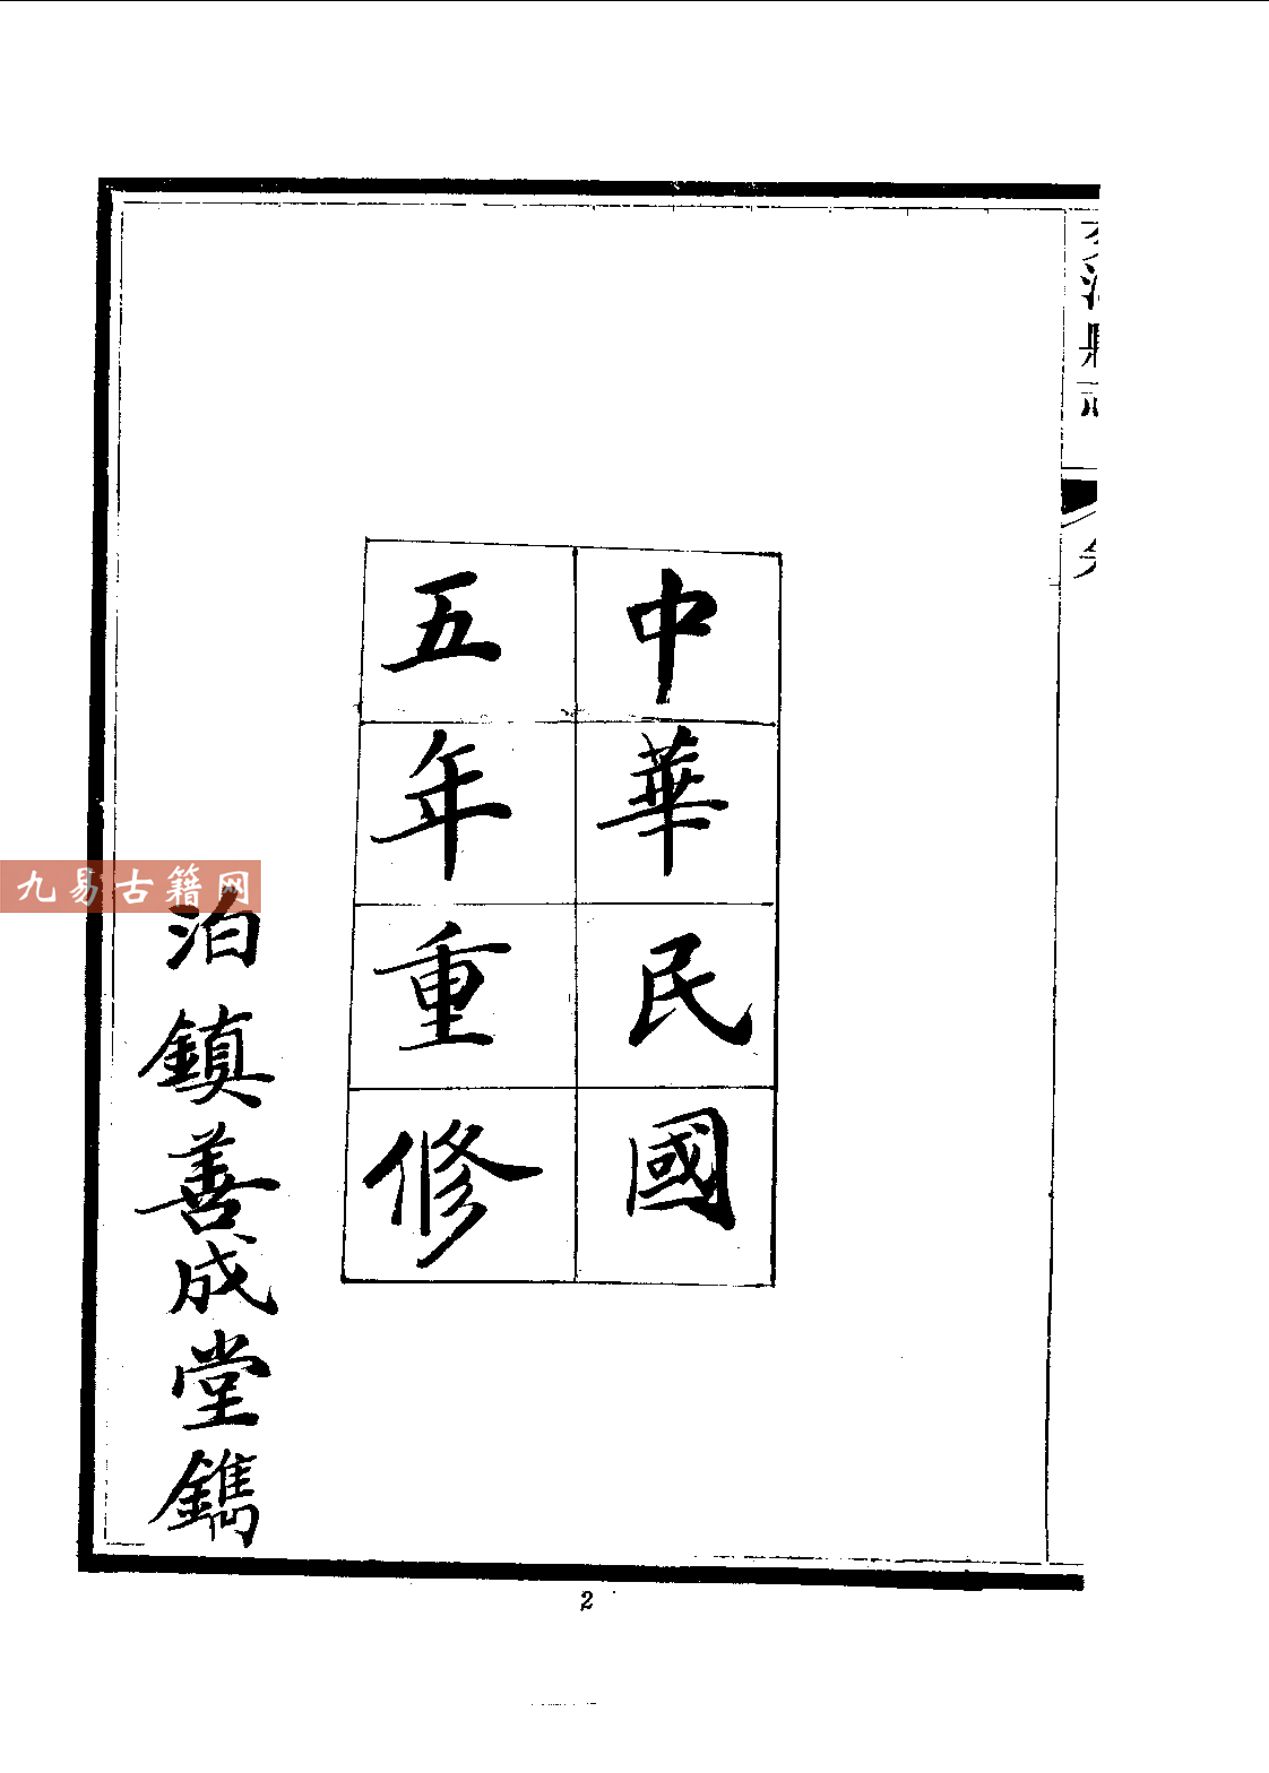 中華民國
五年重修
泊鎮善成堂鐫
九易古籍网
2